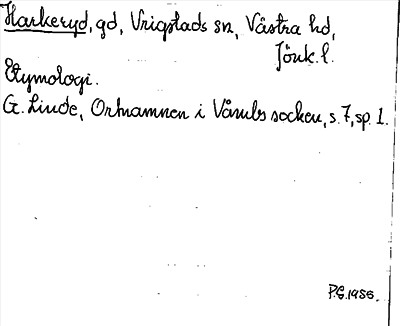 Harkeryd, gd, Vrigstads sn, Västra hd,
Jönk. l.
Etymologi.
G. Linde, Ortnamnen i Våmbs socken, s. 7, sp. 1.
P.G. 1956.